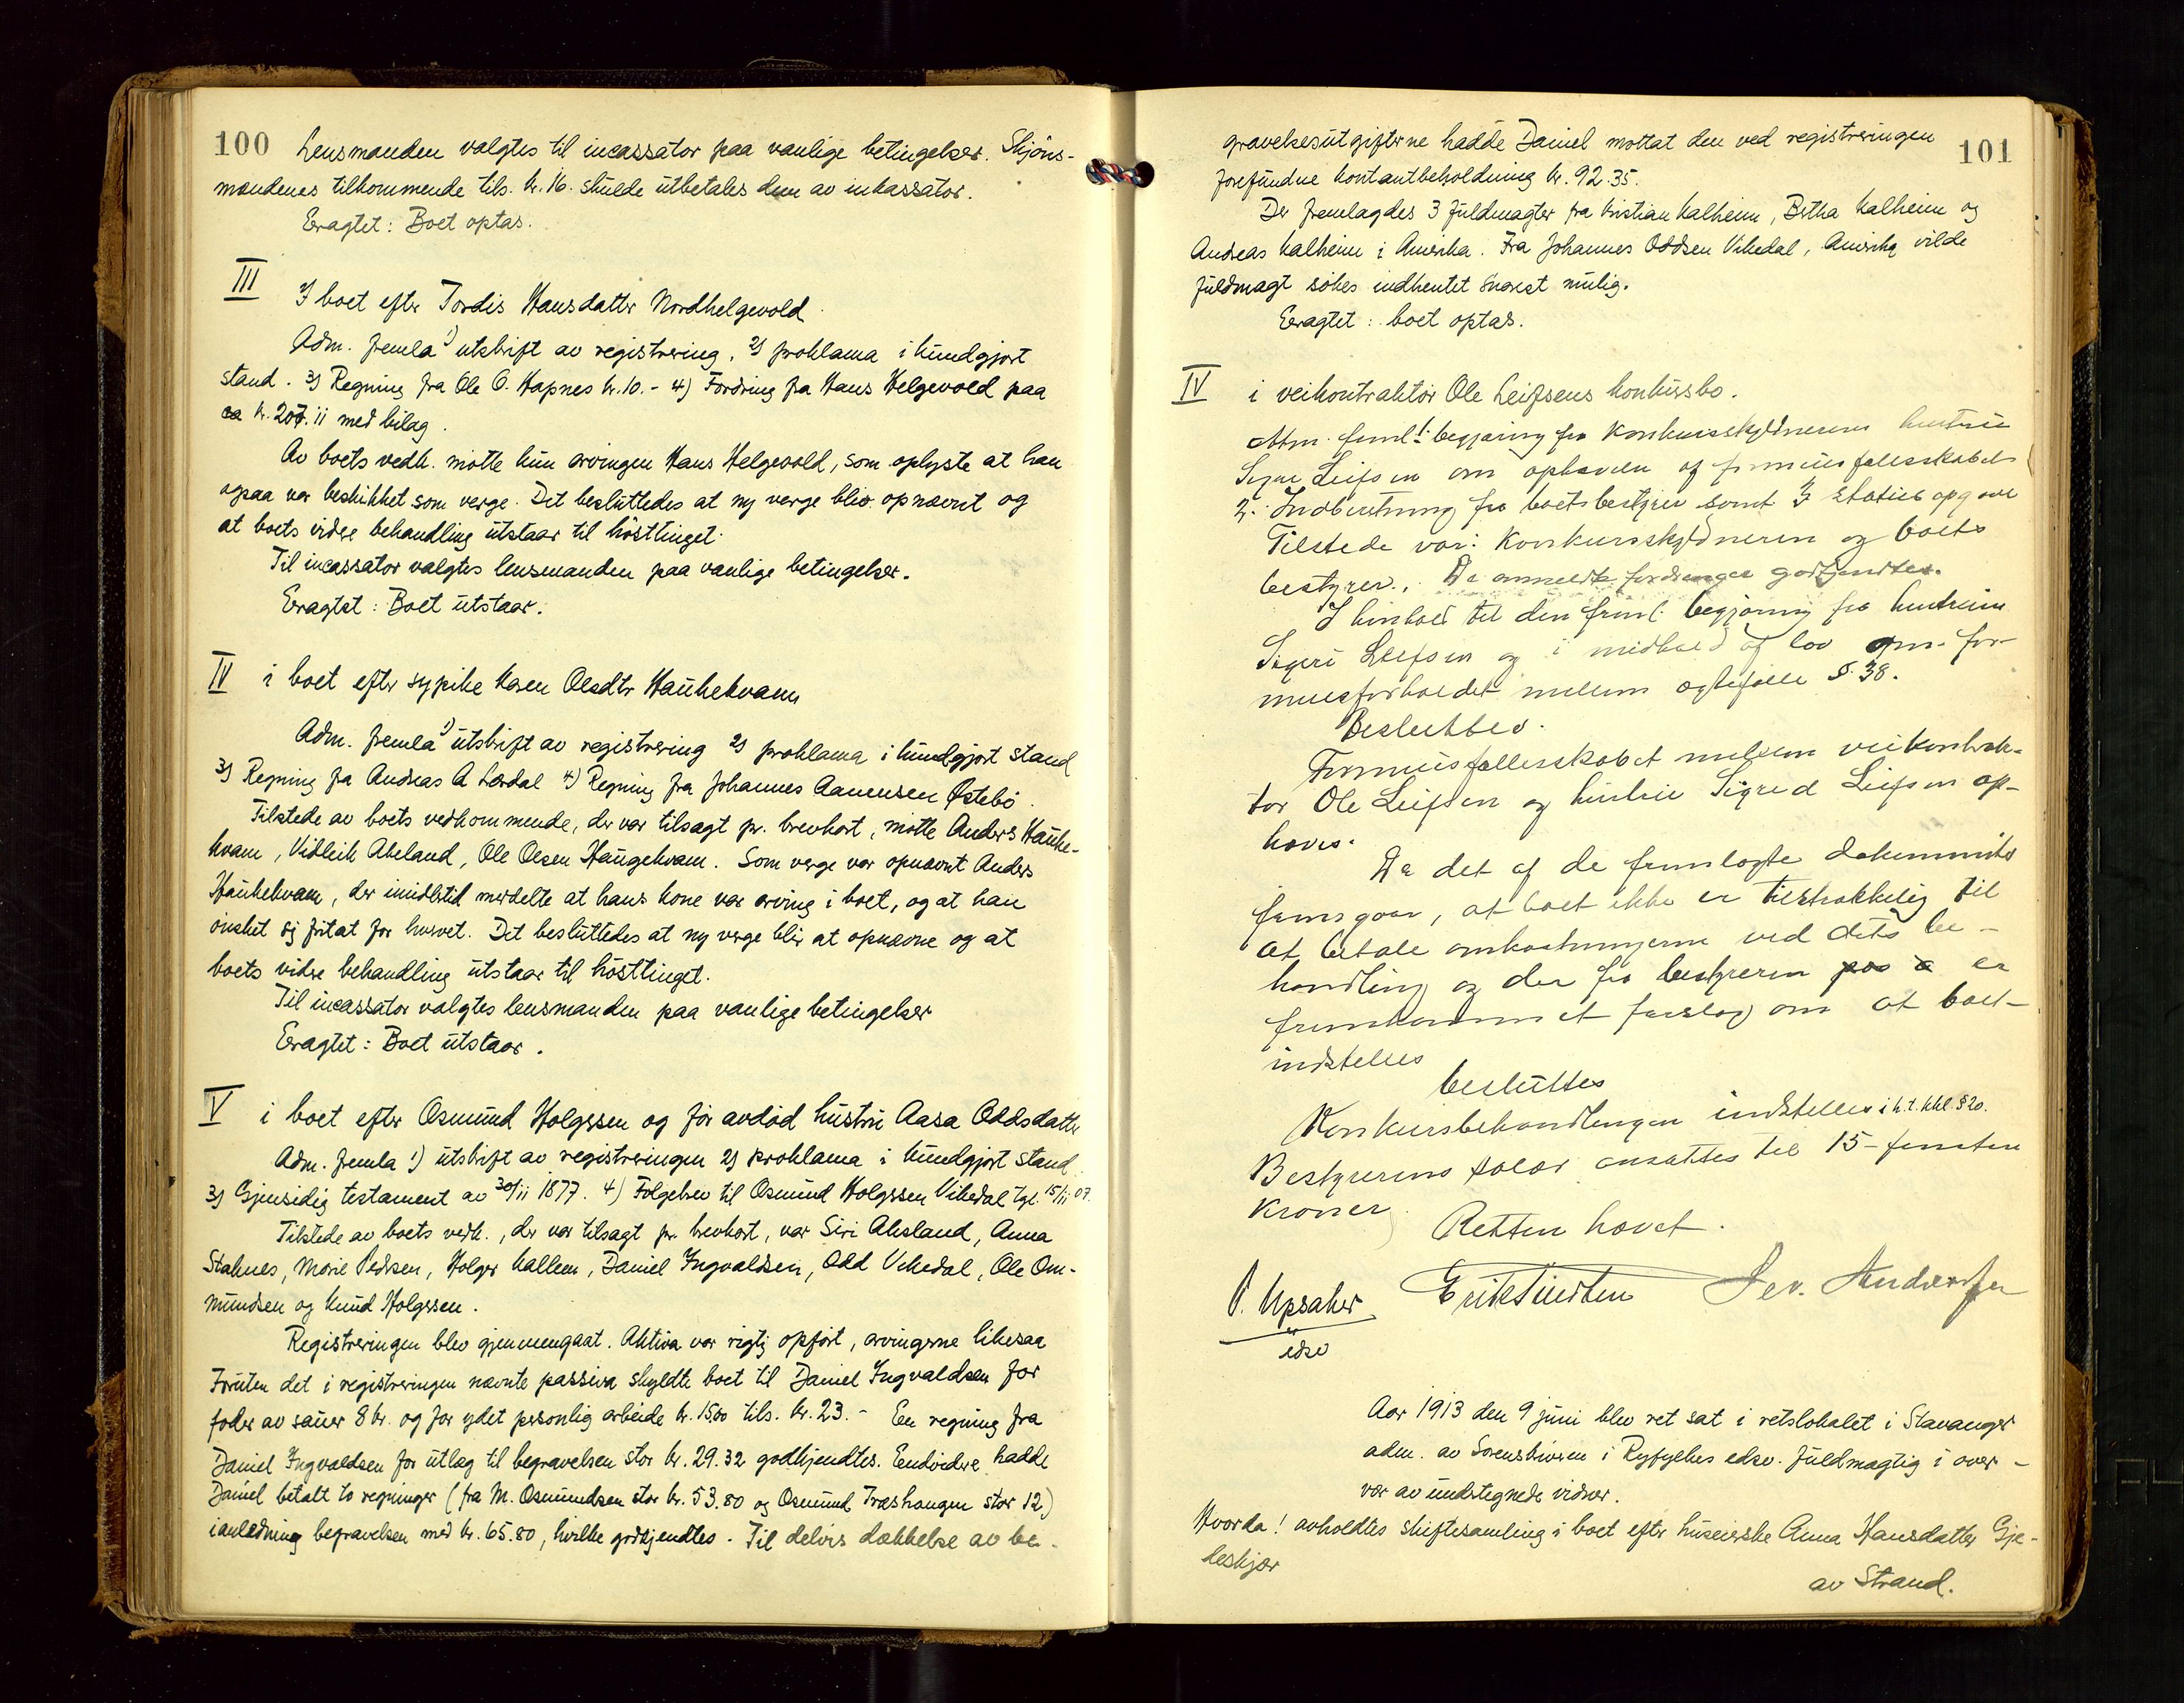 100
Lensmanden valgtes til incassator paa vanlige betingelser. Skjöns-
mændenes tilkommende tils. kr. 16. skulde utbetales dem av inkassator.
Eragtet: Boet optas.
III
I boet efter Tordis Hansdatter Nordhelgevold
Adm. fremla 1) utskrift av registrering. 2) proklama i kundgjort
stand. 3) Regning fra Ole O. Hapnes kr. 10.- 4) Fordring fra Hans Helgevold paa
kr. 207.11 med bilag.
Av boets vedk. mötte kun arvingen Hans Helgevold, som oplyste at han
ogsaa var beskikket som verge. Det besluttedes at ny verge blev opnævnt og
at boets videre behandling utstaar til hösttinget.
Til incassator valgtes lensmanden paa vanlige betingelser.
Eragtet: Boet utstaar.
IV
i boet efter sypike Karen Olsdtr Haukekvam
Adm. fremla 1) utskrift av registrering 2) proklama i kundgjort stand
3) Regning fra Andreas A Lærdal 4) Regning fra Johannes Aanensen Østebö.
Tilstede av boets vedkommende, der var tilsagt pr. brevkort, mötte Anders Hauke-
kvam, Vidleik Akeland, Ole Olsen Haugekvam. Som verge var opnævnt Anders
Haukekvam, der imidlertid meddelte at hans kone var arving i boet, og at han
önsket sig fritat for hvervet. Det besluttedes at ny verge blir at opnævne og at
boets videre behandling utstaar til hösttinget.
Til incassator valgtes lensmanden paa vanlige betingelser
Eragtet: Boet utstaar.
V
i boet efter Osmund Holgersen og för avdöd hustru Aasa Oddsdatter
Adm. fremla 1) utskrift av registreringen 2) proklama i kundgjort stand
3) Gjensidig testament av 30/11 1877. 4) Fölgebrev til Osmund Holgersen Vikedal tgl. 15/11 07.
Tilstede av boets vedk., der var tilsagt pr. brevkort, var Siri Aksland, Anna
Staknes, Marie Pedersen, Holger Kallem, Daniel Ingvaldsen, Odd Vikedal, Ole Om-
mundsen og Knud Holgersen.
Registreringen blev gjennemgaat. Aktiva var rigtig opfört, arvingerne likesaa
Foruten det i registreringen nævnte passiva skyldte boet til Daniel Ingvaldsen for
foder av sauer 8 kr. og for ydet personlig arbeide kr. 15.00 tils. kr. 23.- En regning fra
Daniel Ingvaldsen for utlæg til begravelsen stor kr. 29.32 godkjendtes. Endvidere hadde
Daniel betalt to regninger (fra M. Osmundsen stor kr. 53.80 og Osmund Træshaugen stor 12)
i anledning begravelsen med kr. 65.80, hvilke godkjendtes. Til delvis dækkelse av be-
101
gravelsesutgifterne hadde Daniel mottat den ved registreringen
forefundne kontantbeholdning kr. 92.35.
Der fremlagdes 3 fuldmagter fra Kristian Kalheim, Betha Kalheim og
Andreas Kalheim i Amerika. Fra Johannes Oddsen Vikedal, Amerika vilde
fuldmagt sökes indhentet snarest mulig.
Eragtet: boet optas.
IV
i veikontraktör Ole Leifsens konkursbo.
Adm. freml. 1. begjæring fra Konkursskyldnerens hustru
Signe Leifsen om ophævelse af formuesfællesskabet
2. Indberetning fra boetsbestyrer samt 3 status opgave
Tilstede var: Konkursskyldneren og boets
bestyrer. De anmeldte fordringer godkjendtes.
I henhold til den freml. begjæring fra hustruen
Sigri Leifsen og i medhold af lov om for-
muesforholdet mellem ægtefæller § 38.
Besluttes.
Formuesfællesskabet mellem veikontrak-
tör Ole Leifsen og hustru Sigrid Leifsen op-
hæves.
Da det af de fremlagte dokumenter
fremgaar, at boet ikke er tilstrækkelig til
at betale omkostningerne ved dets be-
handling og der fra bestyreren er
fremkommet forslag om at boet
indstelles
besluttes
Konkursbehandlingen indstelles i h.t. kkl. § 20.
Bestyrerens salær ansættes til 15 - femten
Kroner
Retten hævet.
P. Upsaker
edsv
Aar 1913 den 9 juni blev ret sat i retslokalet i Stavanger
adm. av Sorenskriveren i Ryfylkes edsv. fuldmægtig i over-
vær av undertegnede vidner.
Hvorda! avholdtes skiftesamling i boet efter huseierske Anna Hansdatter Gje-
deskjær
av Strand.